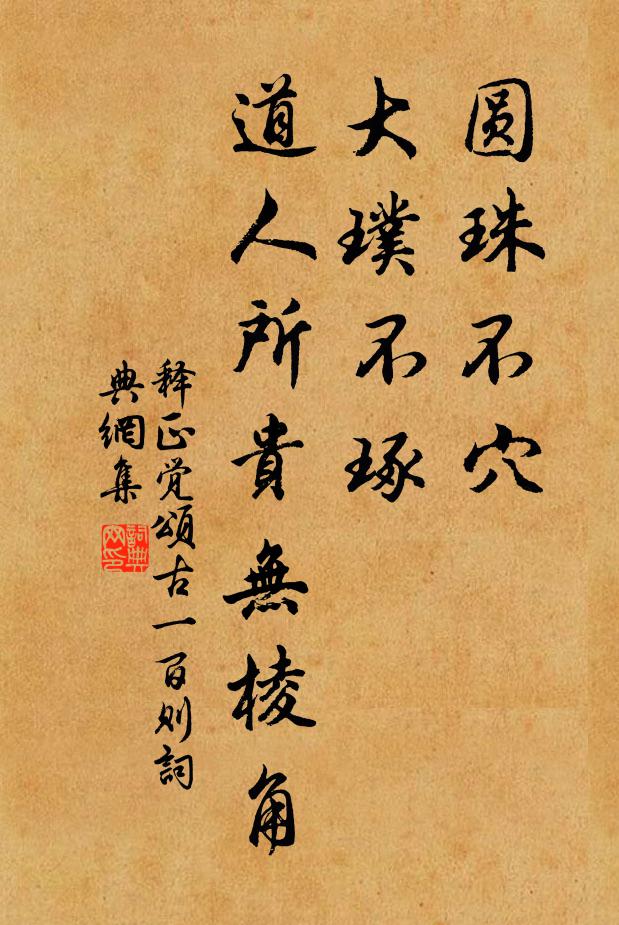 圆珠不穴
大璞不琢
道人所貴無棱角
释正觉頌古一百则詞
典網集
詞典
网印